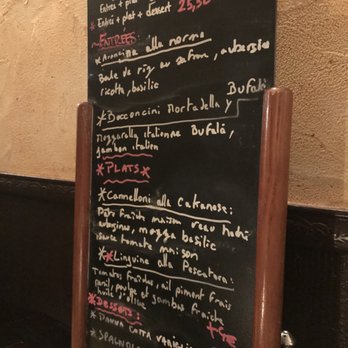 Entrée + plat +
* Entrée + plat + dessert 25,50
~ENTREES:
* Arancine alla norma
Boule de riz au safran, aubergine
ricotta, basilic
* Bocconcini Mortadella y Bufala
Mozzarella italienne Bufala,
jambon italien
* PLATS *
* Cannelloni alla Catanese:
Pâte fraîche maison veau haché
aubergines, mozza basilic
sauce tomate maison
** Linguine alla Pescatora:
Tomates fraîches, ail piment frais
persil, poulpe et gambas fraîche
huile d'olive
* DESSERTS:
* PANNA COTTA
* SPAGNOLA